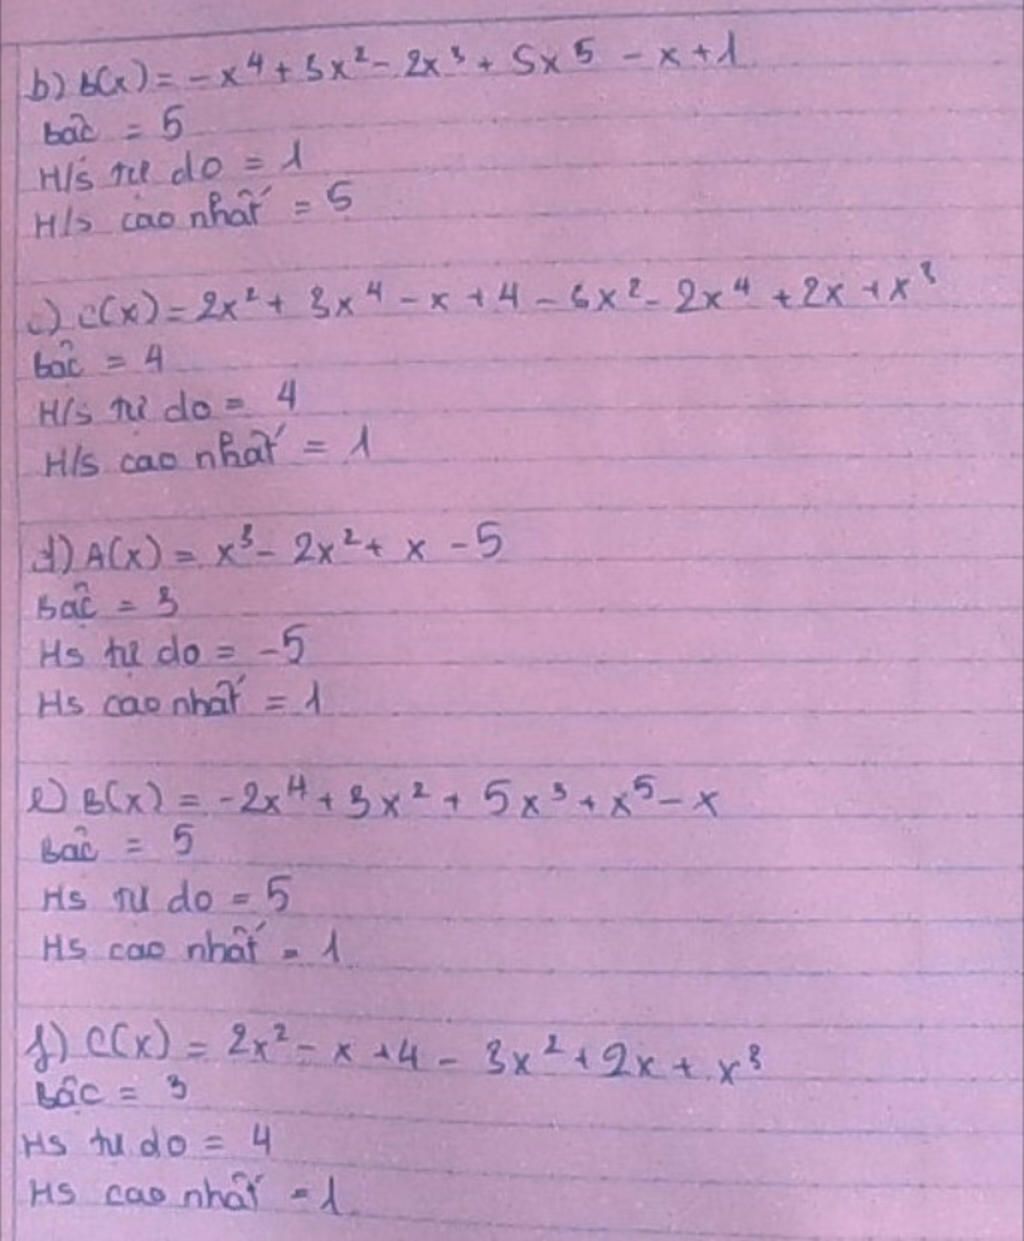 b) B(x) = -x⁴ + 3x² - 2x³ + 5x⁵ - x + 1
bậc = 5
H/s tự do = 1
H/s cao nhất = 5
c) C(x) = 2x² + 3x⁴ - x + 4 - 3x² - 2x⁴ + 2x + x³
bậc = 4
H/s tự do = 4
H/s cao nhất = 1
d) A(x) = x³ - 2x² + x - 5
Bậc = 3
Hs tự do = -5
Hs cao nhất = 1
e) B(x) = -2x⁴ + 3x² + 5x³ + x⁵ - x
Bậc = 5
Hs tự do = 5
Hs cao nhất = 1
f) C(x) = 2x² - x + 4 - 3x² + 2x + x³
Bậc = 3
Hs tự do = 4
Hs cao nhất = 1